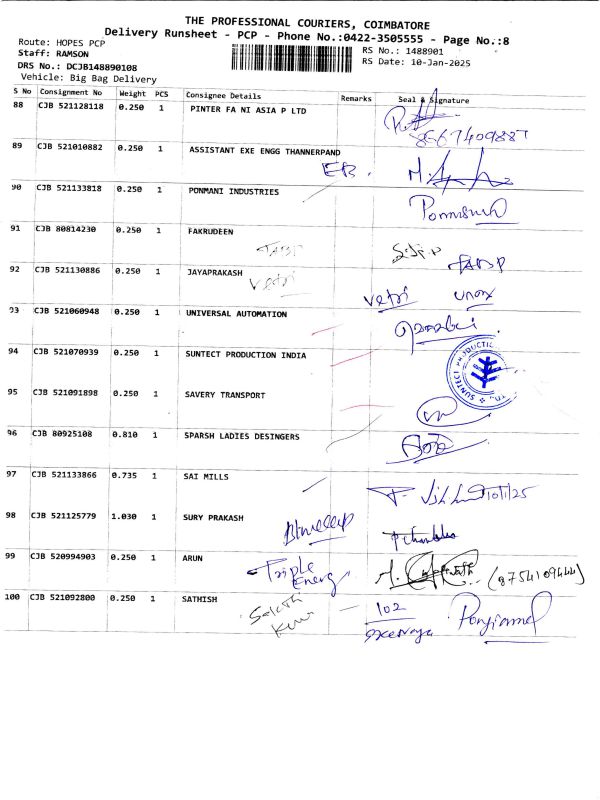 THE PROFESSIONAL COURIERS, COIMBATORE
Delivery Runsheet - PCP - Phone No.:0422-3505555 - Page No.:8
Route: HOPES PCP
RS No.: 1488901
Staff: RAMSON
RS Date: 10-Jan-2025
DRS No.: DCJB148890108
Vehicle: Big Bag Delivery
S No Consignment No Weight PCS Consignee Details Remarks Seal & Signature
88 CJB 521128118 0.250 1 PINTER FA NI ASIA P LTD
8567409887
89 CJB 521010882 0.250 1 ASSISTANT EXE ENGG THANNERPAND
EB.
90 CJB 521133818 0.250 1 PONMANI INDUSTRIES
91 CJB 80814230 0.250 1 FAKRUDEEN
92 CJB 521130886 0.250 1 JAYAPRAKASH
vetri vetri
93 CJB 521060948 0.250 1 UNIVERSAL AUTOMATION
94 CJB 521070939 0.250 1 SUNTECT PRODUCTION INDIA
SUNTECT PRODUCTION
95 CJB 521091898 0.250 1 SAVERY TRANSPORT
96 CJB 80925108 0.810 1 SPARSH LADIES DESINGERS
97 CJB 521133866 0.735 1 SAI MILLS
10/1/25
98 CJB 521125779 1.030 1 SURY PRAKASH
99 CJB 520994903 0.250 1 ARUN
Triple
Energy
(8754109444)
100 CJB 521092800 0.250 1 SATHISH
102